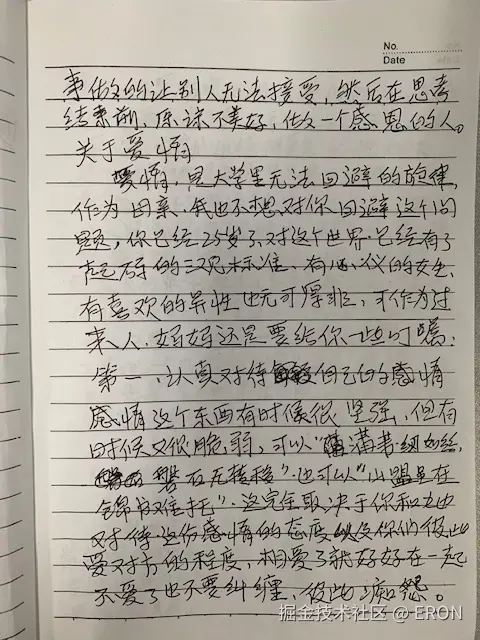 No.
Date
事做的让别人无法接受,然后在思考
结束前,原谅不美好,做一个感恩的人。
关于爱情
爱情,是大学里无法回避的旋律,
作为母亲,我也不想对你回避这个问
题,你已经25岁了,对这个世界已经有了
起码的三观标准,有心仪的女生,
有喜欢的异性也无可厚非,可作为过
来人,妈妈还是要给你一些叮嘱,
第一、认真对待自己的感情
感情这个东西有时候很坚强,但有
时候又很脆弱,可以“蒲苇纫如丝,
磐石无转移”也可以“山盟虽在
锦书难托”。这完全取决于你和她
对待这份感情的态度以及你们彼此
爱对方的程度,相爱了就好好在一起
不爱了也不要纠缠,彼此痴怨。
掘金技术社区 @ ERON